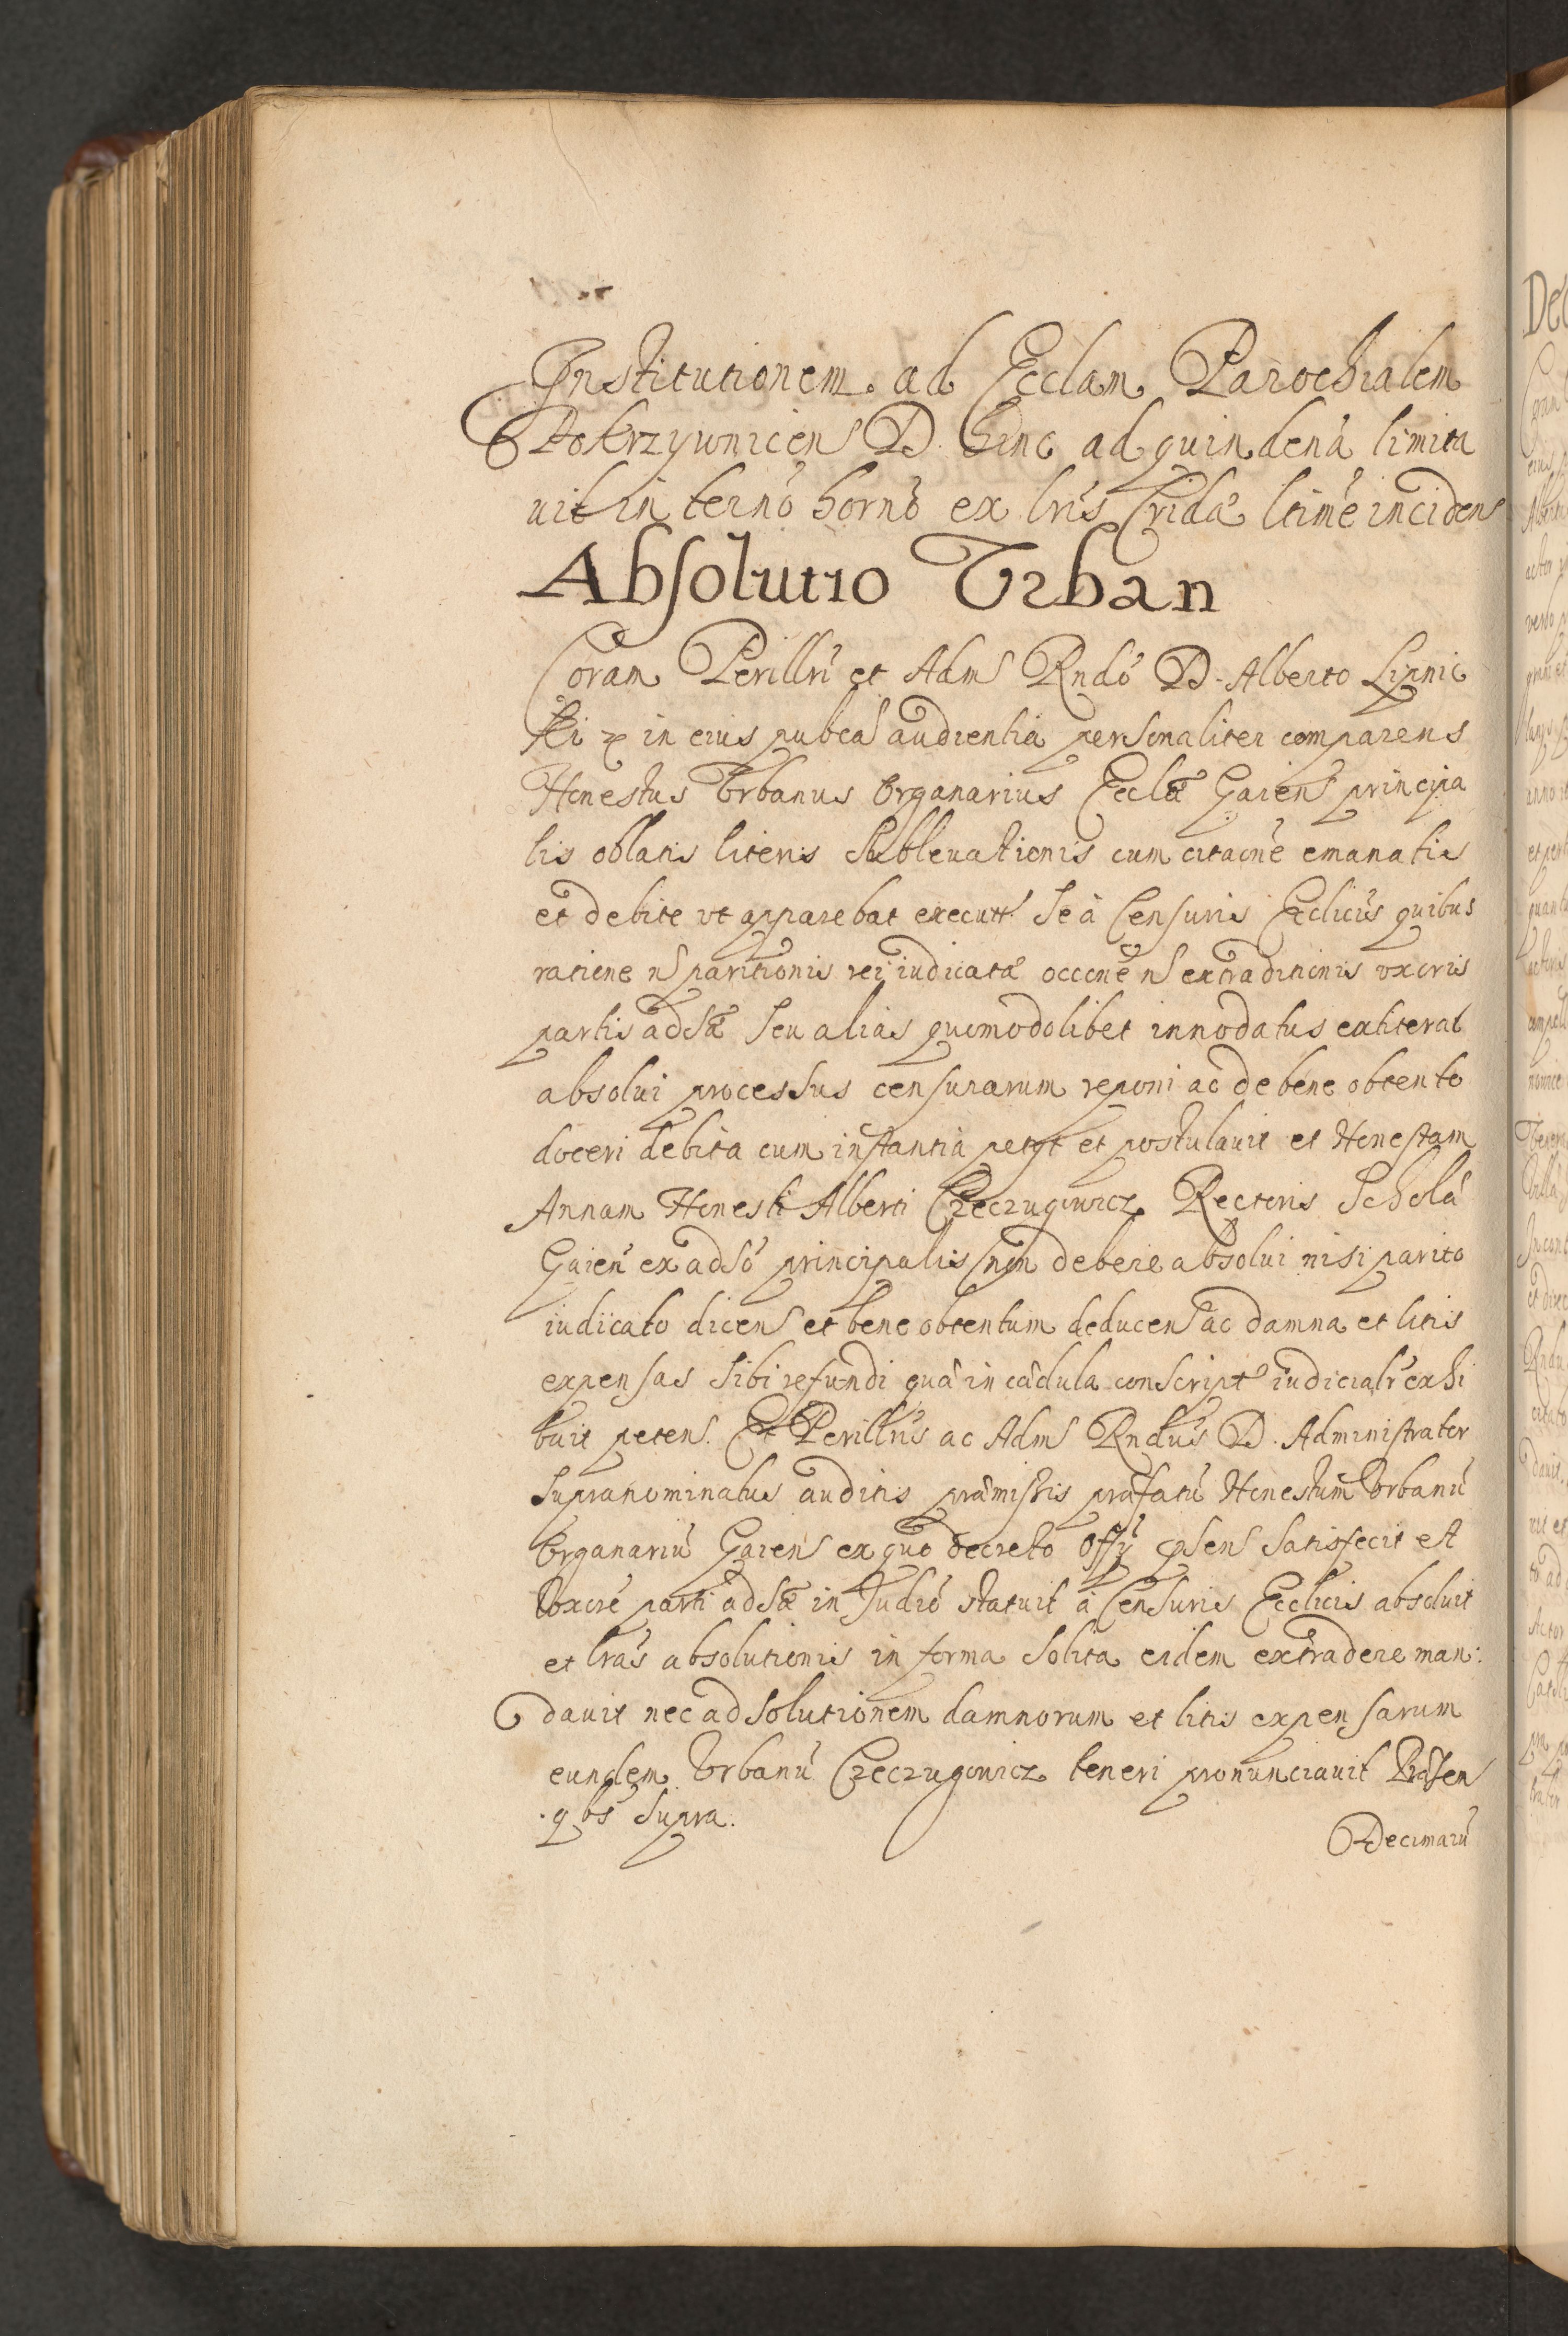 Institutionem ad Ecclam Parochialem
Pokrzywnicen D. hinc ad quindenā limita
uit in termō hornō ex lrīs Cridæ ltimē inciden
Absolutio Vrban
Coram Perillrī et Adm Rndō D. Alberto Lipnic
ki in eius pubca audientia personaliter comparens
Honestus Vrbanus Organarius Ecclæ Gaien principa
lis oblatis literis Subleuationis cum citaōne emanatis
et debite vt apparebat execut. se à Censuris Ecclicis quibus
ratione n paritionis rei iudicatæ occōne n extraditionis vxoris
partis adsæ seu alias quomodolibet innodatus extiterat
absolui processus censurarum reponi ac de bene obtento
doceri debita cum instantia petyt et postulauit et Honestam
Annam Honesti Alberti Czeczugowicz Rectoris Scholæ
Gaien ex adsō principalis non debere absolui nisi parito
iudicato dicens et bene obtentum deducens ac damna et litis
expensas sibi refundi quā in cædula conscript iudicialr exhi
buit petens. Et Perillris ac Adm Rndus D. Administrator
supranominatus auditis præmissis præfatū Honestum Vrbanū
Organariū Gaien ex quo decreto Offy psen satisfecit et
Vxore parti adsæ in Judiō statuit à Censuris Ecclicis absoluit
et lrās absolutionis in forma solita eidem extradere man:
dauit nec ad solutionem damnorum et litis expensarum
eundem Vrbanū Czeczugowicz teneri pronunciauit Præsen
qbs supra.
Decimarū